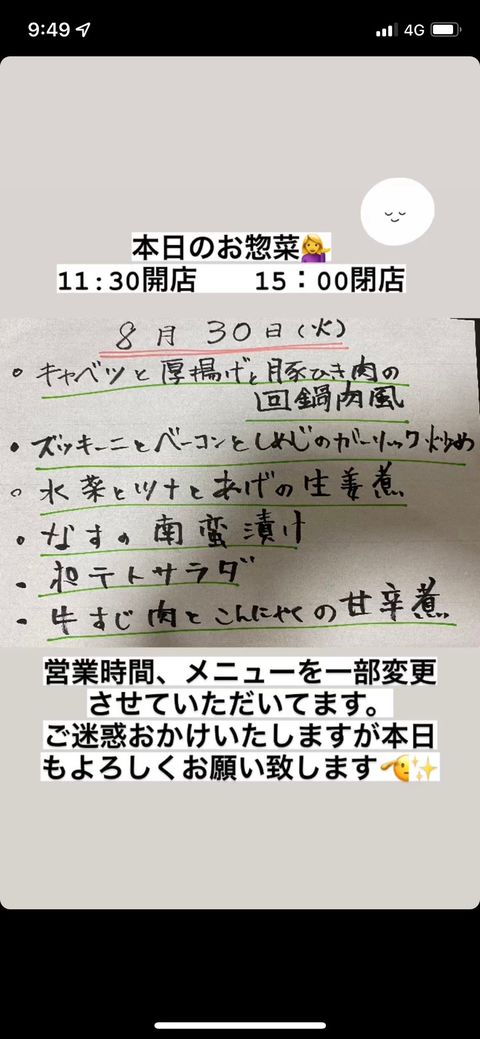 9:49
4G
本日のお惣菜💁‍♀️
11:30開店 15:00閉店
8月30日(火)
• キャベツと厚揚げと豚ひき肉の
回鍋肉風
• ズッキーニとベーコンとしめじのガーリック炒め
• 水菜とツナとあげの生姜煮
• なすの南蛮漬け
• ポテトサラダ
• 牛すじ肉とこんにゃくの甘辛煮
営業時間、メニューを一部変更
させていただいてます。
ご迷惑おかけいたしますが本日
もよろしくお願い致します🫡✨